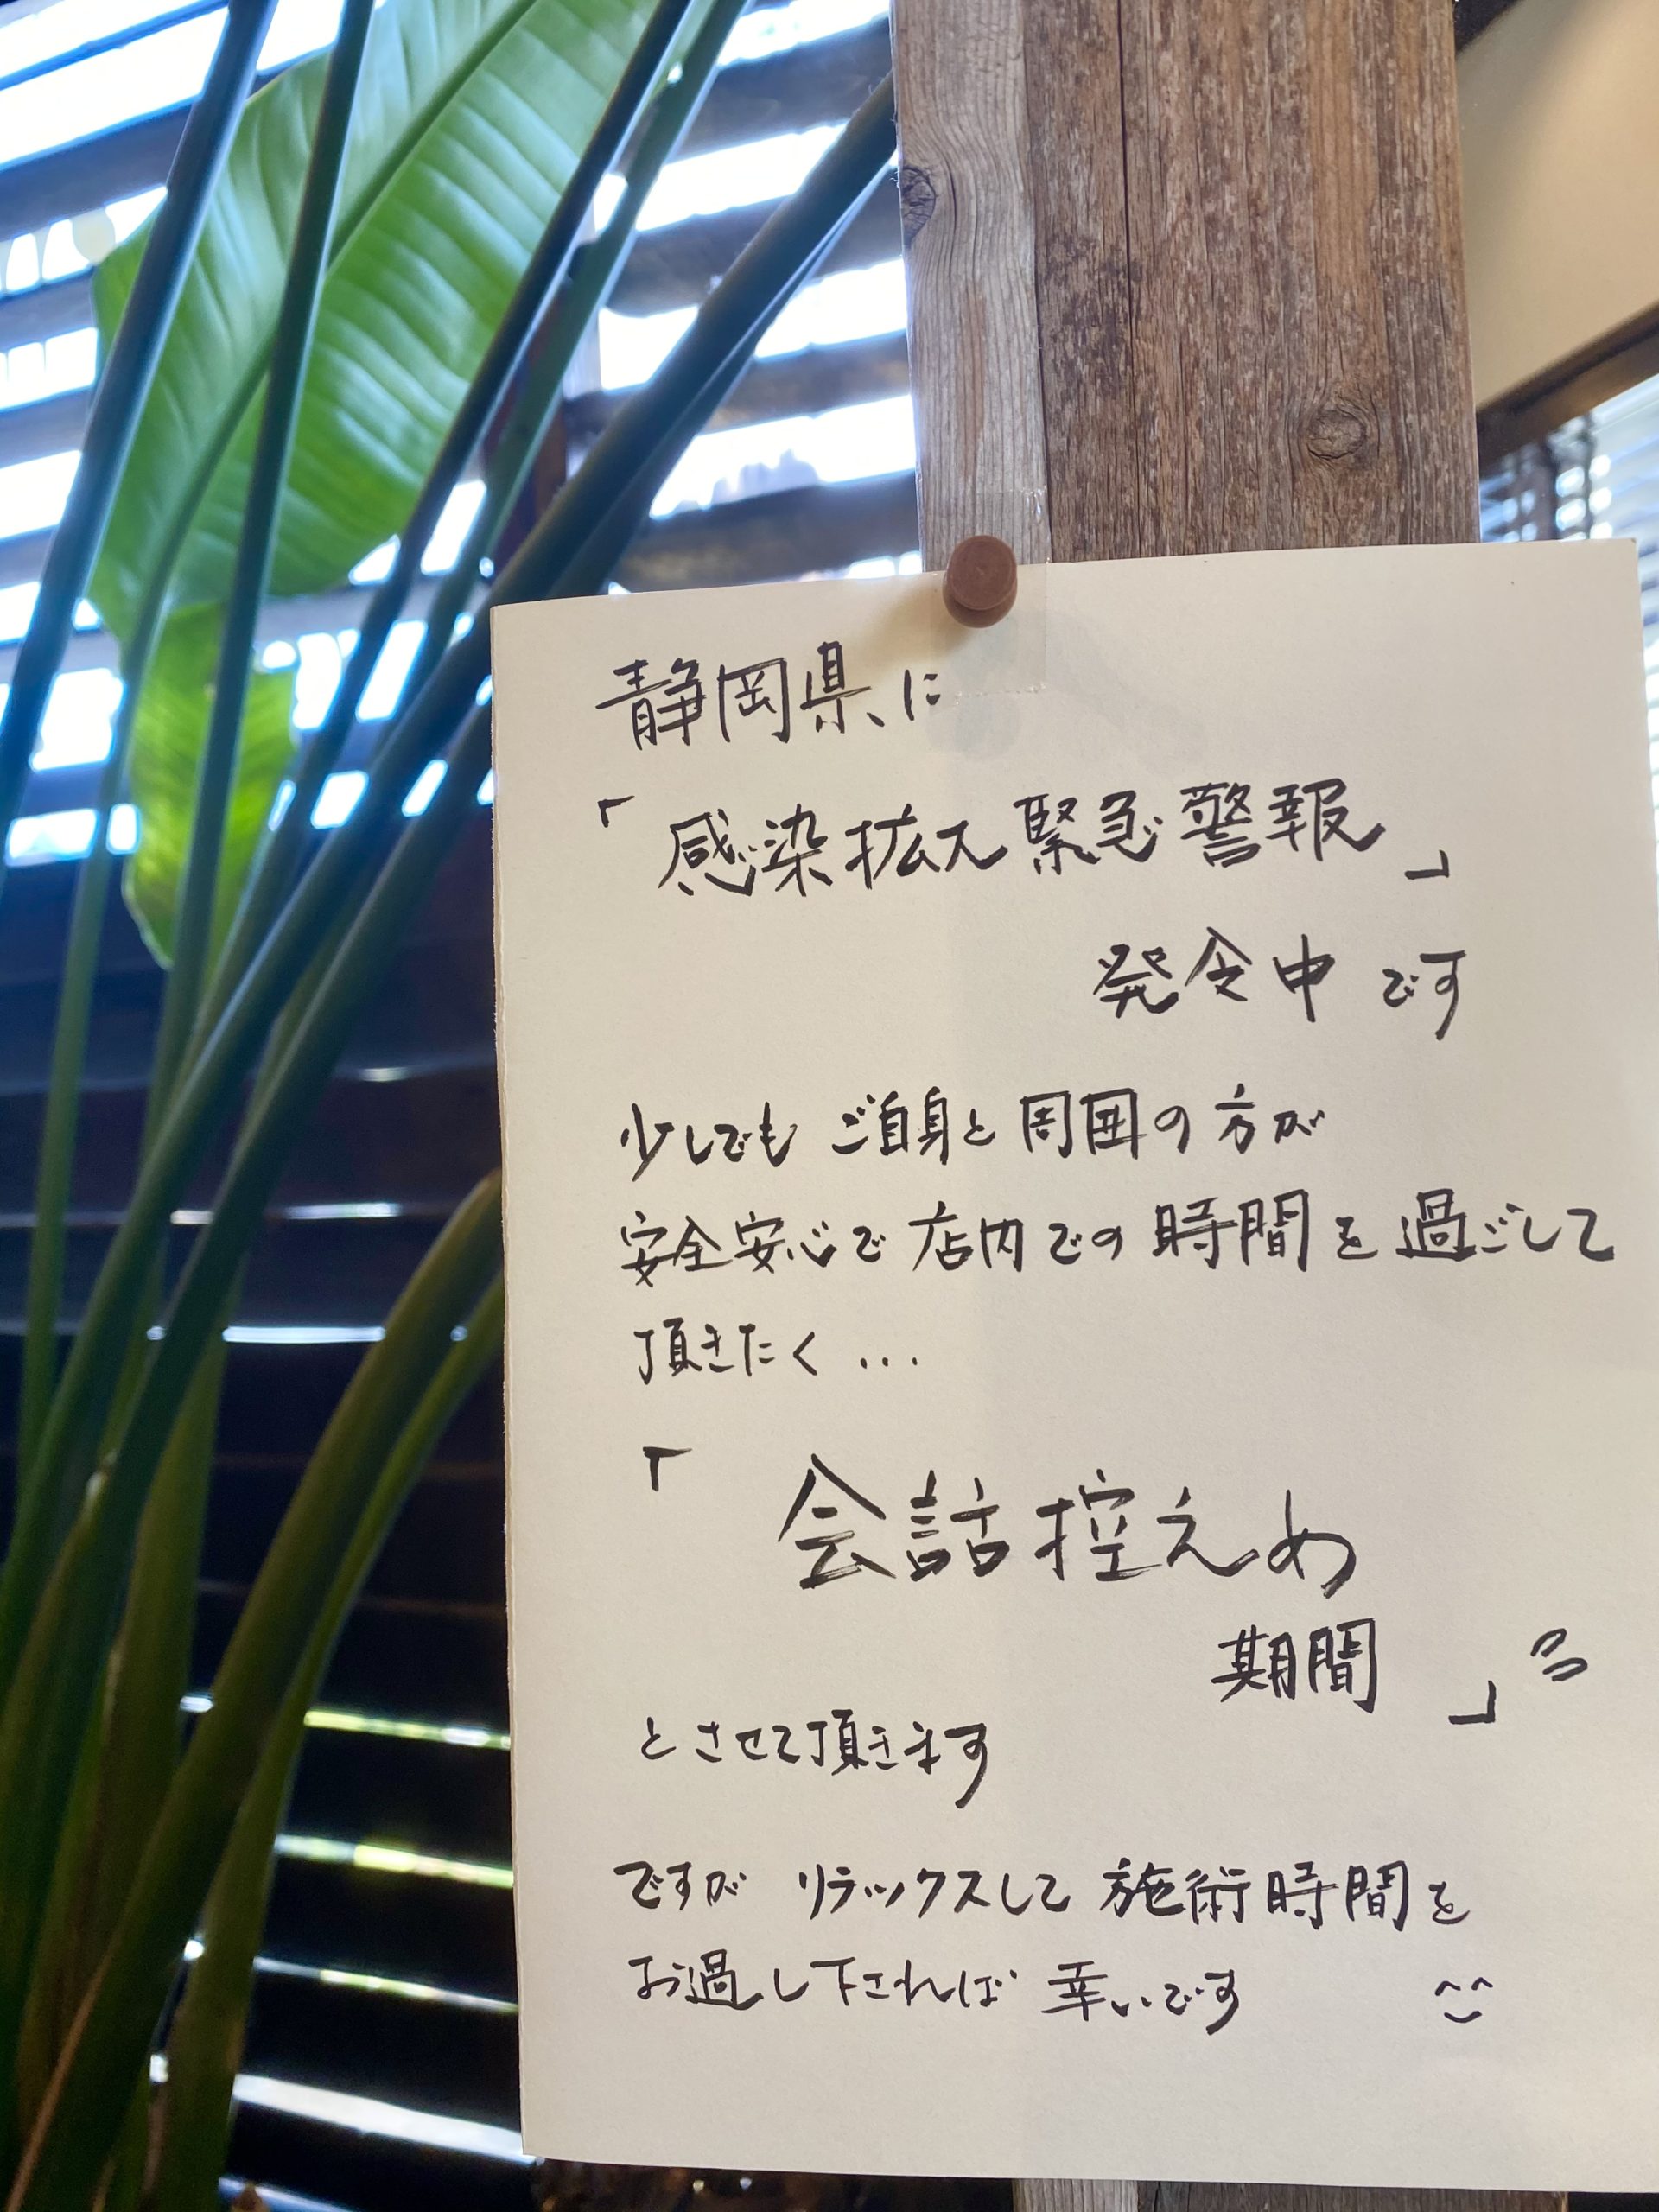 静岡県、に
「感染拡大緊急警報」
発令中です
少しでも ご自身と周囲の方が
安全安心で店内での時間を過ごして
頂きたく...
「会話控えめ
期間」
とさせて頂きます
ですが リラックスして施術時間を
お過し下されば幸いです ^^